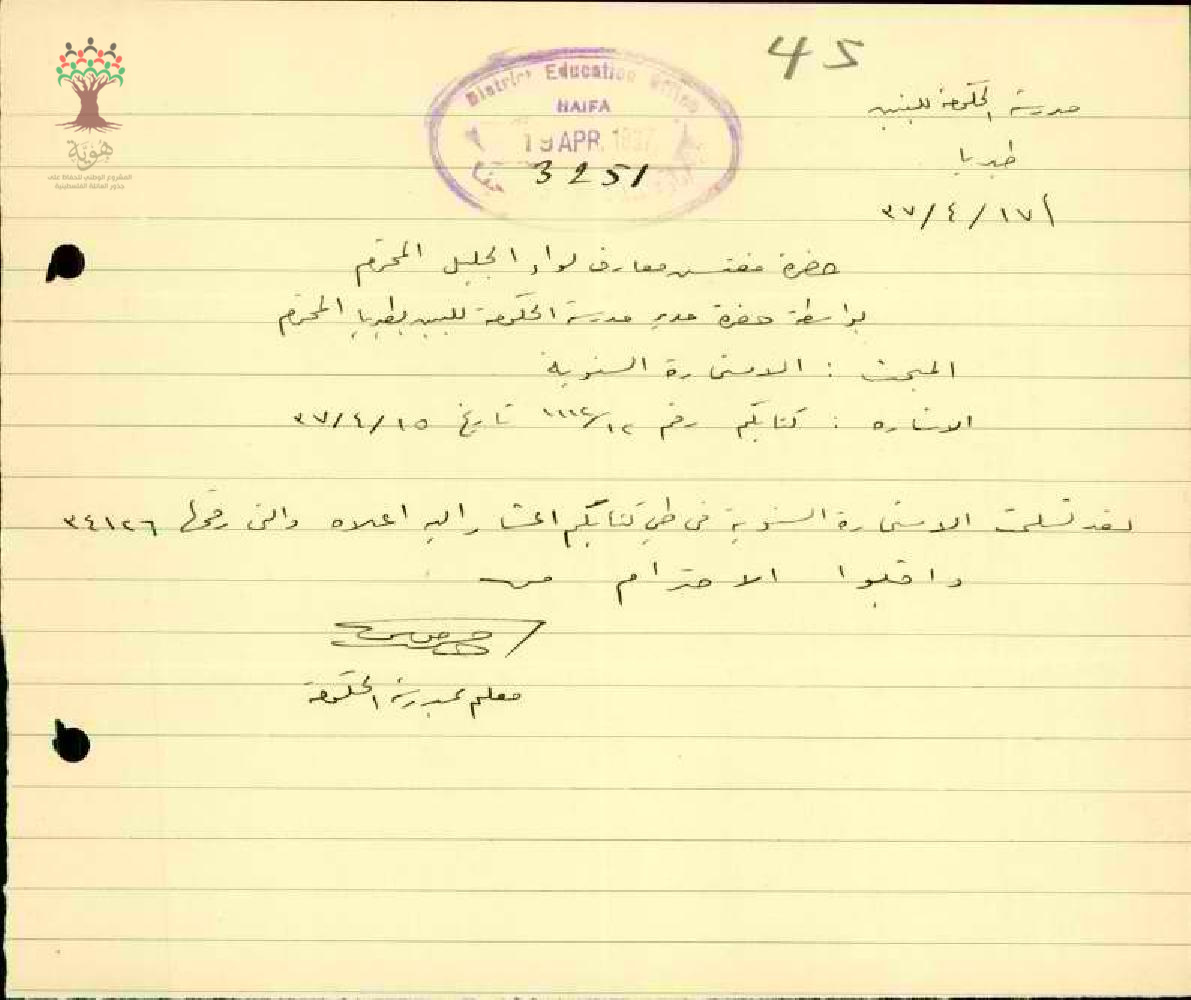 45
هوية
المشروع الوطني للحفاظ على
جذور العائلة الفلسطينية
District Education Office
HAIFA
19 APR. 1937
حيفا
3251
مدرسة الحكومة للبنين
طبريا
٣٧/٤/١٧
حضرة مفتش معارف لواء الجليل المحترم
بواسطة حضرة مدير مدرسة الحكومة للبنين بطبريا المحترم
المبحث : الاستمارة السنوية
الاشارة : كتابكم رقم تاريخ ٣٧/٤/١٥
لقد تسلمت الاستمارة السنوية في طي كتابكم المشار اليه اعلاه والتي رقمها ٣٤١٢٦
واقبلوا الاحترام من
معلم بمدرسة الحكومة